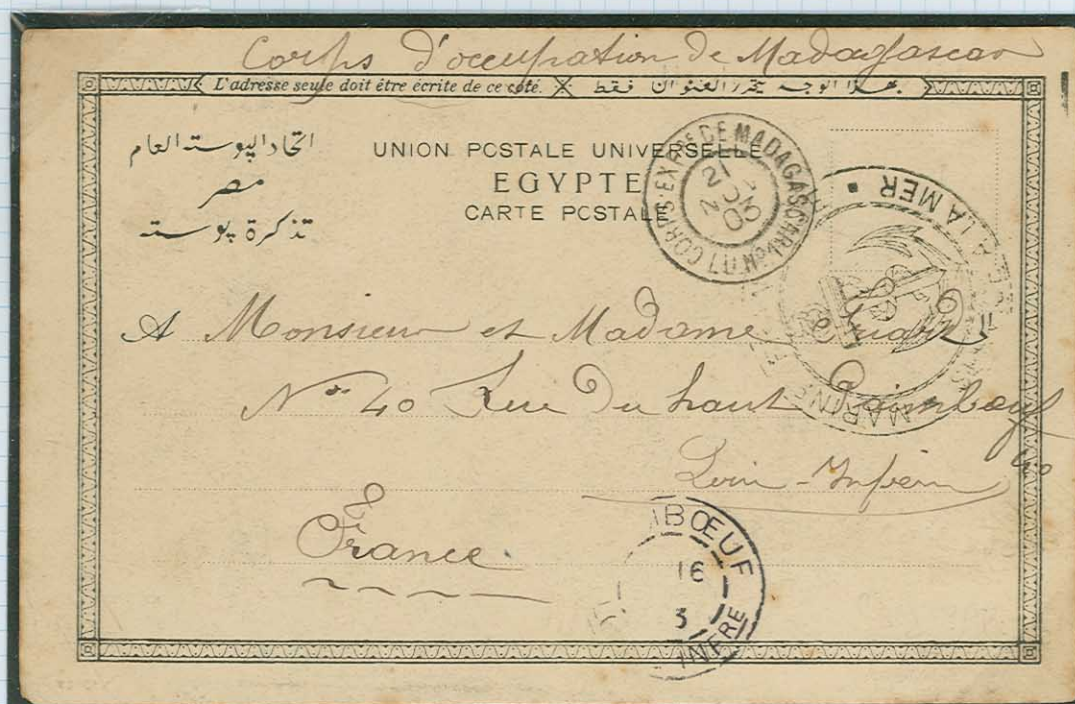 Corps d'occupation de Madagascar
L'adresse seule doit être écrite de ce côté. بهذا الوجه يحرر العنوان فقط
اتحاد البوسته العام
مصر
تذكرة بوسته
UNION POSTALE UNIVERSELLE
EGYPTE
CARTE POSTALE
CORPS · EXPRE DE MADAGASCAR
21
NOV
00
LA MER
MARINE
A Monsieur et Madame
No 40 Rue Du haut Paimboeuf
Loire-Inférie
France
BŒUF
16
3
INFRE